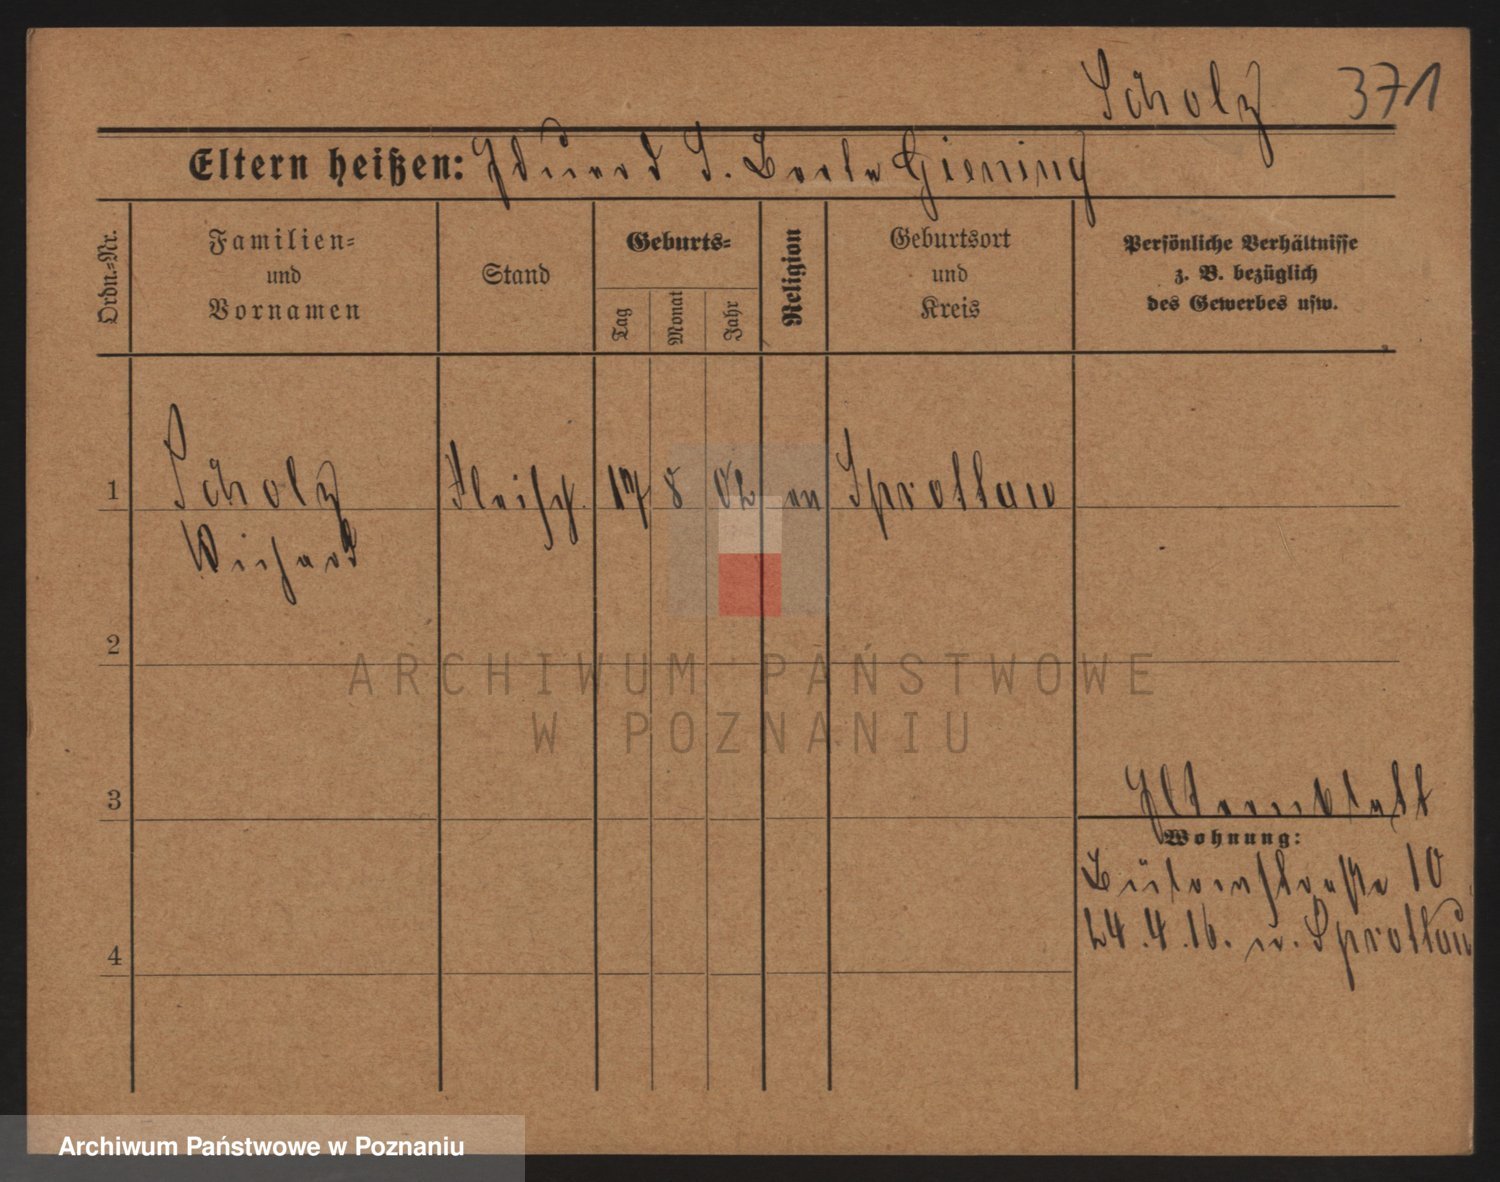 Scholz 371
Eltern heißen: Eduard S. Berta Giening
Ordn.-Nr.
Familien=
und
Vornamen
Stand
Geburts=
Tag
Monat
Jahr
Religion
Geburtsort
und
Kreis
Persönliche Verhältnisse
z. B. bezüglich
des Gewerbes usw.
1 Scholz Fleisch. 17 8 02 ev Sprottau
Richard
2
ARCHIWUM PAŃSTWOWE
W POZNANIU
3
Wohnung:
10
24.4.16. n. Sprottau
4
Archiwum Państwowe w Poznaniu